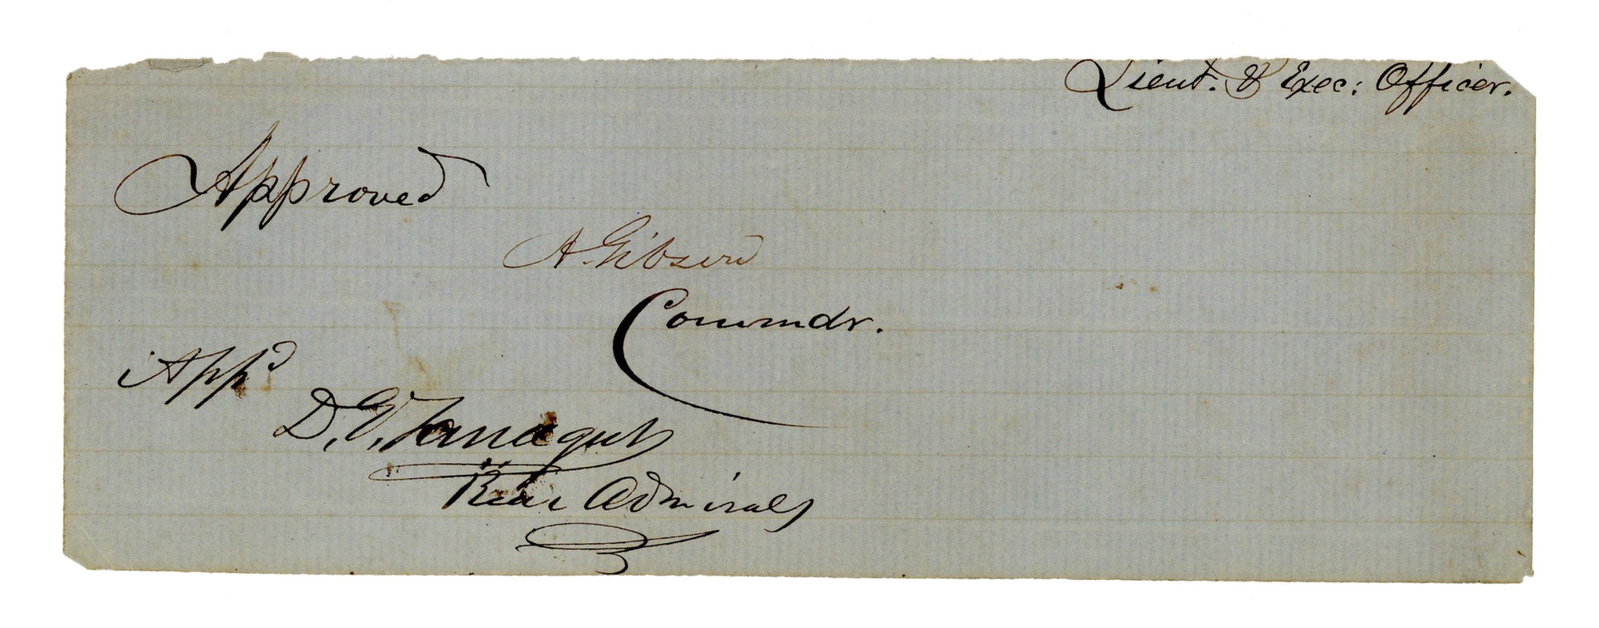 Lieut. & Exec: Officer.
Approved
A. Gibson
Commdr.
Appd
D. G. Farragut
Rear Admiral